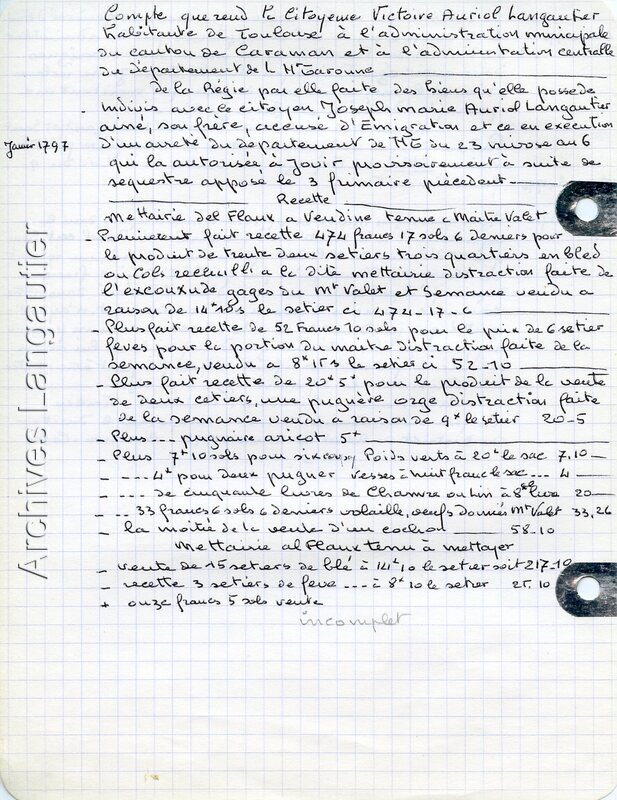 Compte que rend la Citoyenne Victoire Auriol Langautier
habitante de Toulouse à l'administration municipale
du canton de Caraman et à l'administration centralle
du département de L Hte Garonne
de la Régie par elle faite des biens qu'elle possede
indivis avec le citoyen Joseph marie Auriol Langautier
ainé, son frère, accusé d'Emigration et ce en execution
Janvier 1797
d'un arreté du departement de HG du 23 nivose an 6
qui la autorisée à Jouir provisoirement à suite de
sequestre apposé le 3 frimaire précedent
Recette
Mettairie del Flaux a Vendine tenue Maitre Valet
- Premierement fait recette 474 francs 17 sols 6 deniers pour
le produit de trente deux setiers trois quartiers en bled
ou Cols recueilli a la dite mettairie distraction faite de
l'excoux de gages du mt Valet et semance vendu a
raison de 14# 10s le setier ci 474-17-6
- Plus fait recette de 52 francs 10 sols pour le prix de 6 setier
feves pour la portion du maitre distraction faite de la
semance, vendu a 8# 15s le setier ci 52-10
- Plus fait recette de 20# 5s pour le produit de la vente
de deux cetiers, une pugnère orge distraction faite
de la semance vendu à raison de 9# le setier 20-5
- Plus --- pugnaire aricot 5#
- Plus 7# 10 sols pour six Poids verts à 20# le sac 7,10
- --- 4# pour deux pugner vesses à huit franc le sac --- 4
- --- de cinquante livres de Chamvre ou lin à 8 livre 20
- --- 33 francs 6 sols 6 deniers volaille, oeufs donnés mt Valet 33,26
- la moitié de la vente d'un cochon 58-10
Mettairie al Flaux tenu à mettayer
- vente de 15 setiers de blé à 14# 10 le setier soit 217-10
- recette 3 setiers de feve --- à 8# 10 le setier 25.10
+ onze francs 5 sols vente
incomplet
Archives Langautier